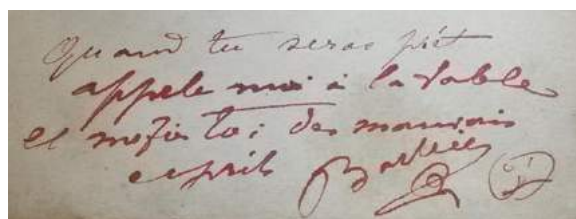 Quand tu seras prêt
appele moi à la table
et mefis toi des mauvais
esprits